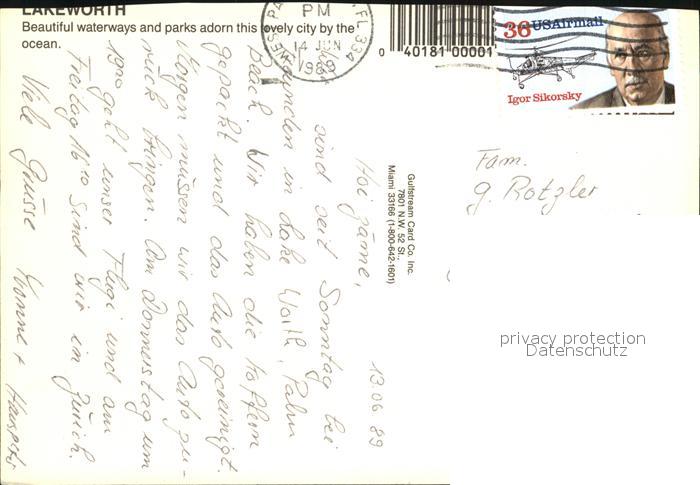 LAKEWORTH
Beautiful waterways and parks adorn this lovely city by the
ocean.
PM
14 JUN
1989
FL 334
0 40181 00001
36 USAirmail
Igor Sikorsky
Fam.
G. Rotzler
Gulfstream Card Co. Inc.
7801 N.W. 52 St.,
Miami 33166 (1-800-642-1601)
13.06.89
Hoi zäme,
sind seit Sonntag bei
Freunden in Lake Worth, Palm
Beach. Wir haben die Koffern
gepackt und das Auto gereinigt.
Morgen müssen wir das Auto zu-
rück bringen. Am Donnerstag um
19⁰⁰ geht unser Flugi und am
Freitag 16¹⁰ sind wir in Zürich.
Viele Grüsse Yvonne + Hanspeter
privacy protection
Datenschutz